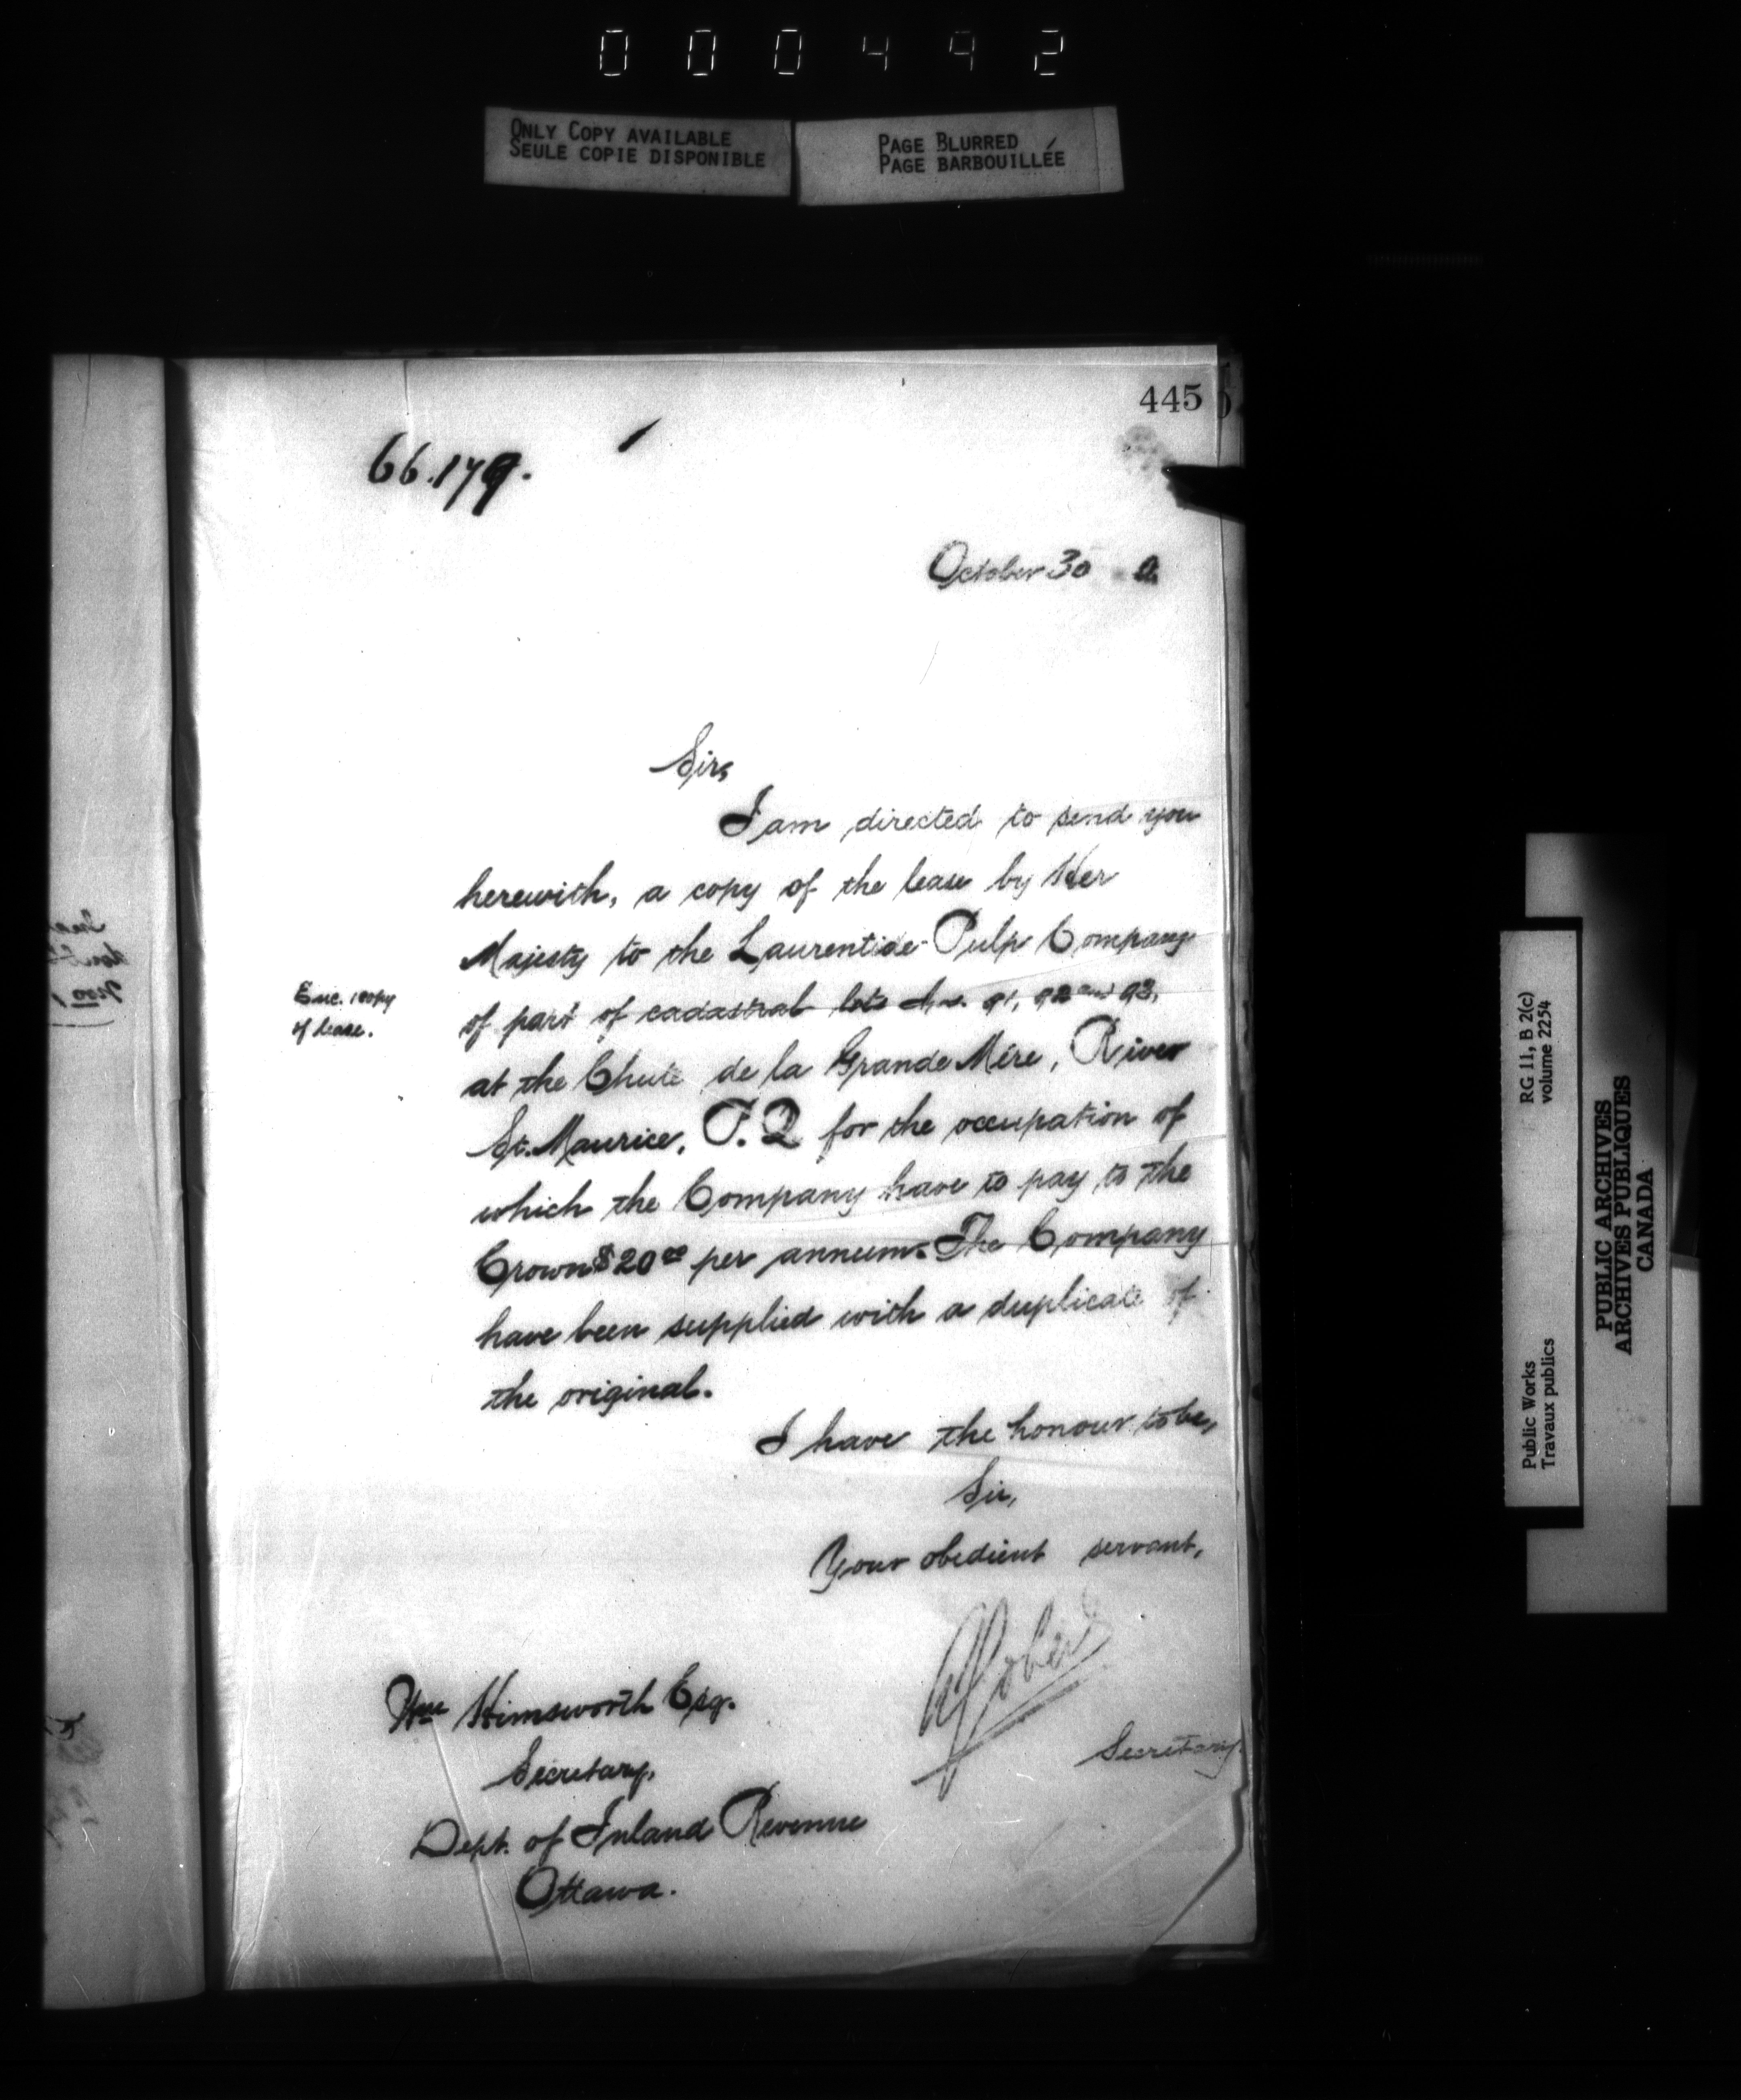 000492
ONLY COPY AVAILABLE
SEULE COPIE DISPONIBLE
PAGE BLURRED
PAGE BARBOUILLÉE
445
66.179.
October 30
Sir,
I am directed to send you
herewith, a copy of the lease by Her
Majesty to the Laurentide Pulp Company
Enc. 1 copy
of lease.
of part of cadastral lots Nos. 91, 92 and 93,
at the Chute de la Grande Mère, River
St. Maurice, P.Q for the occupation of
which the Company have to pay to the
Crown $20 00 per annum. The Company
have been supplied with a duplicate of
the original.
I have the honour to be,
Sir,
Your obedient servant,
Secretary
Wm Himsworth Esq.
Secretary,
Dept. of Inland Revenue
Ottawa.
RG 11, B 2(c)
volume 2254
Public Works
Travaux publics
PUBLIC ARCHIVES
ARCHIVES PUBLIQUES
CANADA